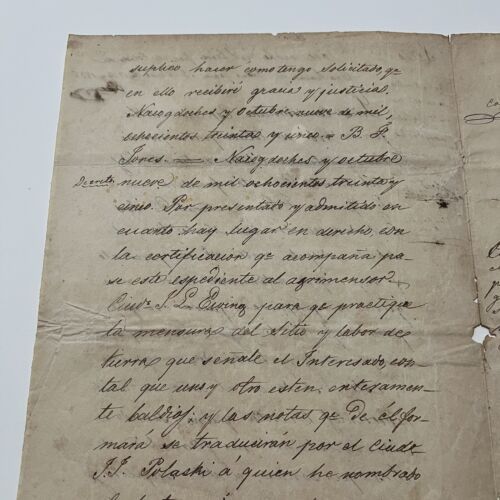 suplico hacer como tengo solicitado, qe
en ello recibiré gracia y justicia.
Nacogdoches y octubre nueve de mil
ochocientos treinta y cinco = B. F.
Jores. == Nacogdoches y octubre
Decreto nueve de mil ochocientos treinta y
cinco. Por presentado y admitido en
cuanto hay lugar en derecho, con
la certificacion qe acompaña pa-
se este espediente al agrimensor
Ciudo. J. L. Ewing para qe practique
la mensura del Sitio y labor de
tierra que señale el Interesado, con
tal que uno y otro esten enteramen-
te baldios; y las notas qe De el for-
mara se traducirán por el Ciudo.
J. J. Polaski á quien he nombrado